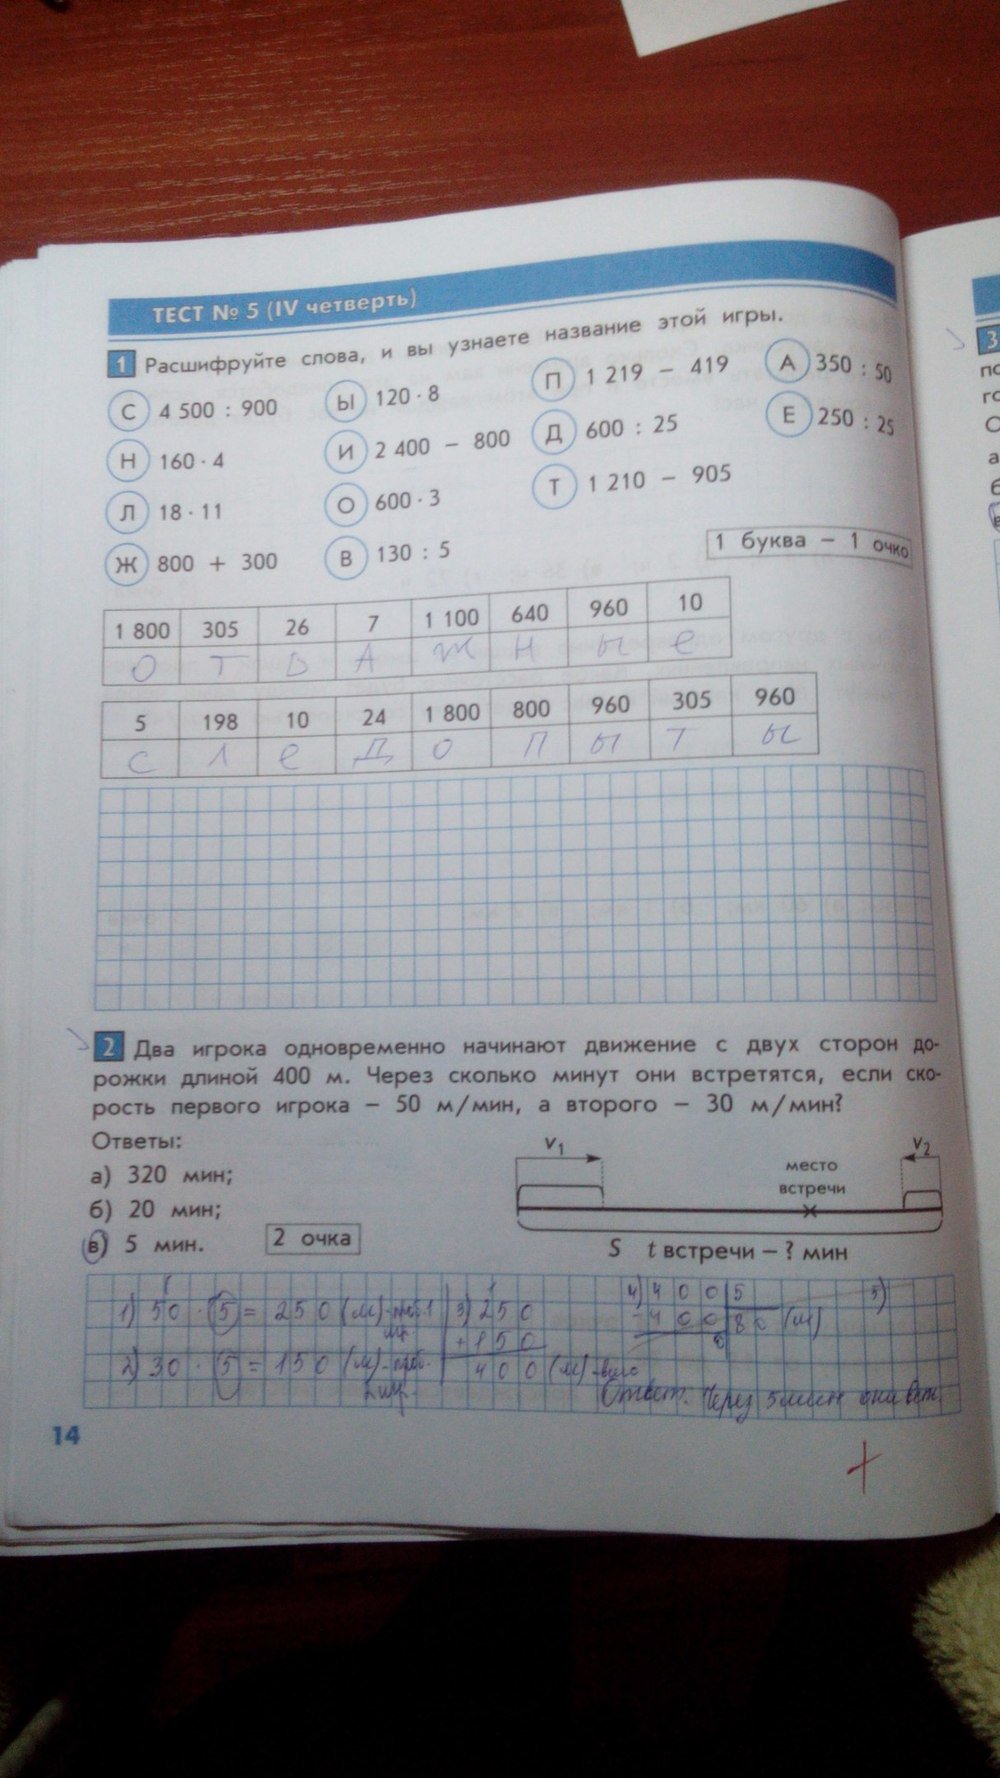 ТЕСТ № 5 (IV четверть)
1 Расшифруйте слова, и вы узнаете название этой игры.
С 4 500 : 900 Ы 120 · 8 П 1 219 − 419 А 350 : 50
Н 160 · 4 И 2 400 − 800 Д 600 : 25 Е 250 : 25
Л 18 · 11 О 600 · 3 Т 1 210 − 905
Ж 800 + 300 В 130 : 5
1 буква − 1 очко
1 800 305 26 7 1 100 640 960 10
О Т В А Ж Н Ы Е
5 198 10 24 1 800 800 960 305 960
С Л Е Д О П Ы Т Ы
2 Два игрока одновременно начинают движение с двух сторон до-
рожки длиной 400 м. Через сколько минут они встретятся, если ско-
рость первого игрока − 50 м/мин, а второго − 30 м/мин?
Ответы:
а) 320 мин;
б) 20 мин;
в) 5 мин.
2 очка
V1 V2
место
встречи
S t встречи − ? мин
1) 50 · 5 = 250 (м) 3) 250 4) 400 5 5)
+ 150 − 400 80 (м)
2) 30 · 5 = 150 (м) 400 (м)
Ответ: Через 5 мин они вст.
14
3